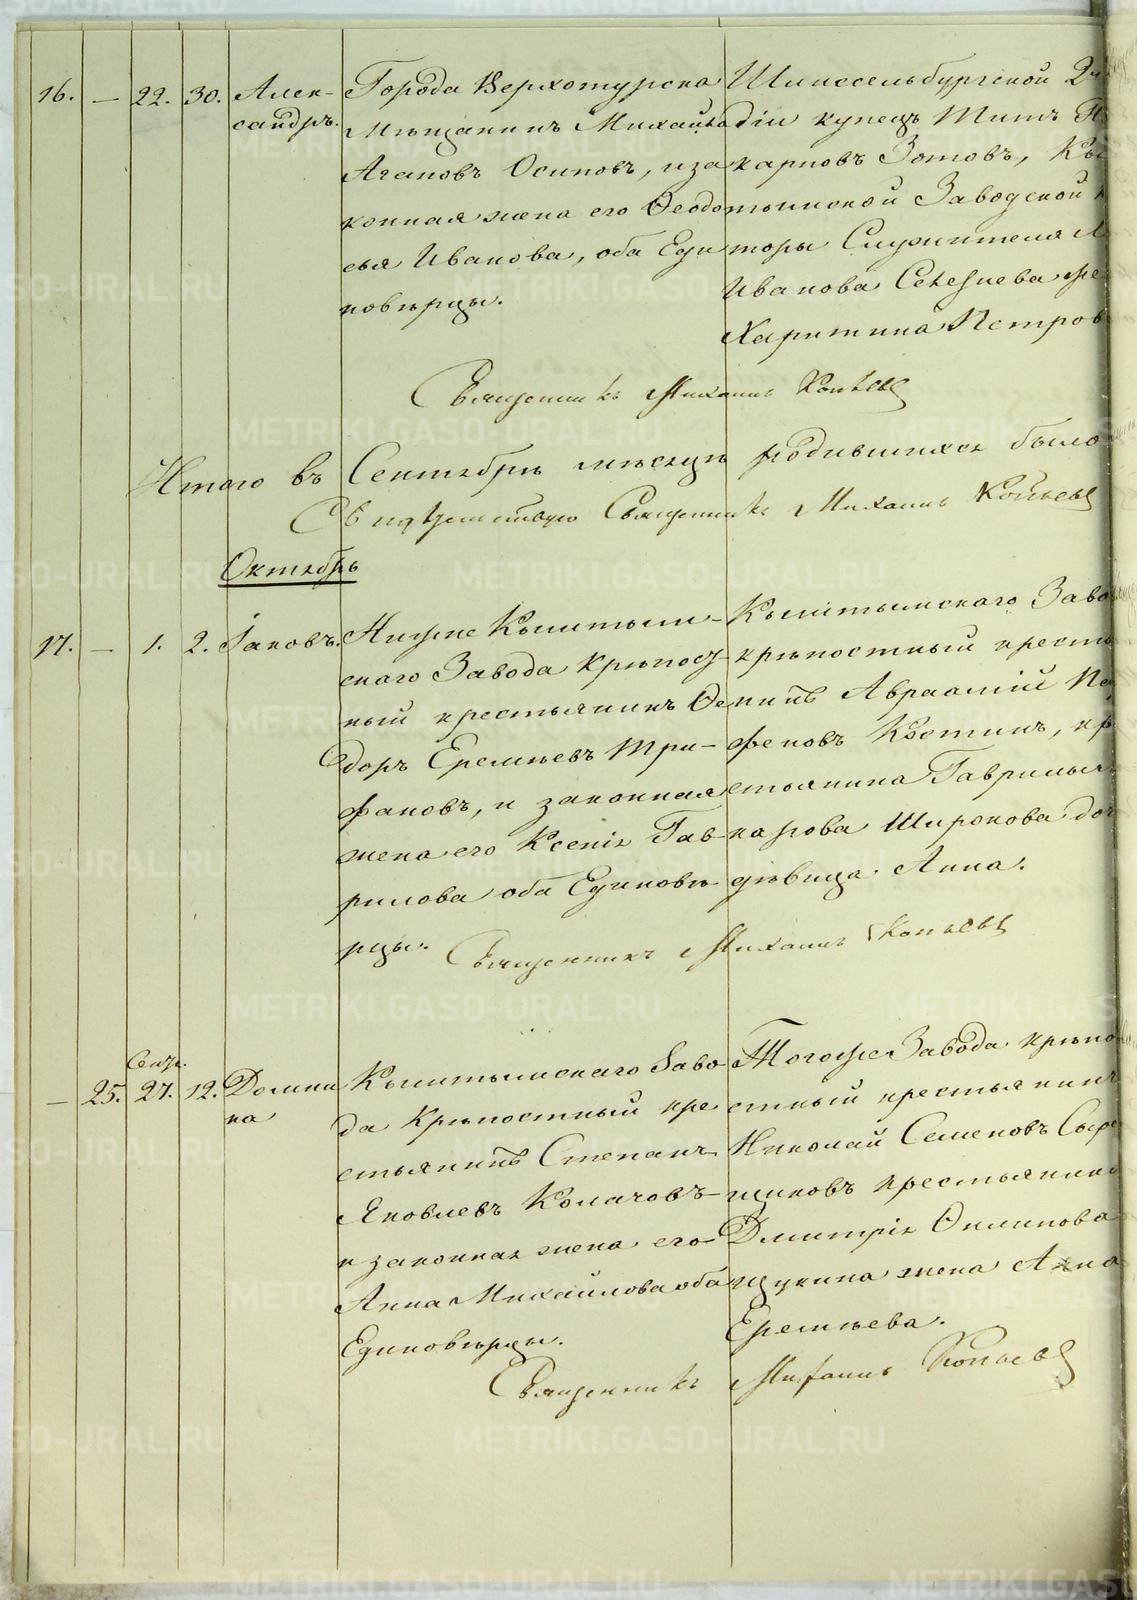 16. — 22. 30. Алек-
сандръ.
Города Верхотурска
Мѣщанинъ Михайла
Агаповъ Осиповъ, и за
конная жена его Ѳеодо
сья Иванова, оба Еди
новѣрцы.
Шлиссельбургской 2й
діи купецъ Титъ По
карповъ Зотовъ, Кы
тымской Заводской
торы Служителя
Иванова Селезнева же
Харитина Петров
Священникъ Михаилъ Копьевъ
Итого въ Сентябрѣ мѣсяцѣ родившихся было
Свидѣтельствую Священникъ Михаилъ Копьевъ
Октябрь
17. — 1. 2. Іаковъ.
Нижне Кыштым-
скаго Завода Крѣпост-
ный крестьянинъ Ѳе
доръ Еремѣевъ Три-
фановъ, и законная
жена его Ксенія Гав-
рилова оба Единовѣ-
рцы.
Кыштымскаго Заво
крѣпостный кресть
нинъ Авраамій Па
феновъ Костинъ, кр
стьянина Гаврилы
карова Широкова доч
дѣвица Анна.
Священникъ Михаилъ Копьевъ
Сент.
— 25. 27. 12. Домни
ка
Кыштымскаго Заво
да Крѣпостный кре
стьянинъ Степанъ
Яковлевъ Колачовъ
и законная жена его
Анна Михайлова оба
Единовѣрцы.
Тогоже Завода крѣпо
стный крестьянинъ
Николай Семеновъ Сыре
щиковъ крестьянина
Дмитрія
щукина жена Анна
Еремѣева.
Священникъ Михаилъ Копьевъ
METRIKI.GASO-URAL.RU